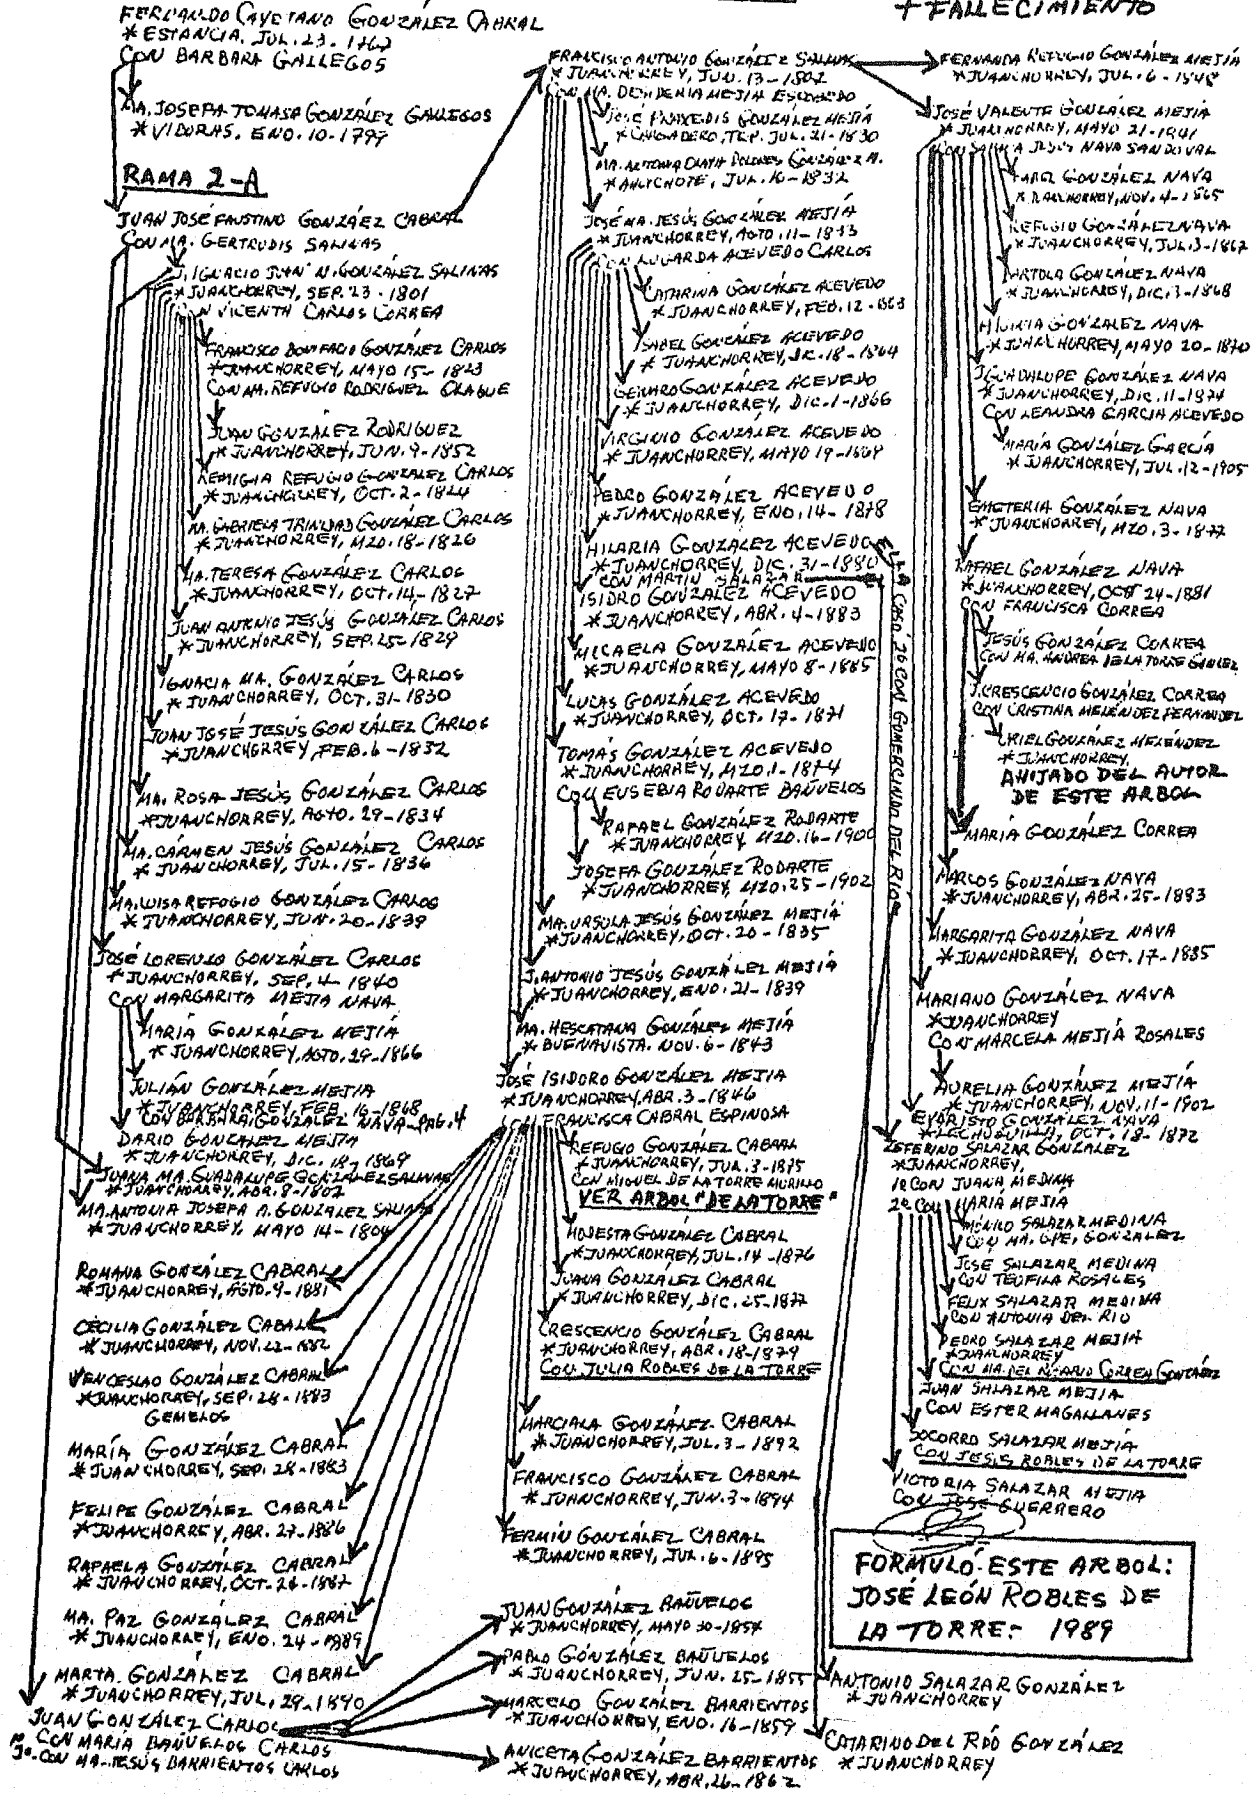 FERNANDO CAYETANO GONZÁLEZ CABRAL
* ESTANCIA. JUL. 23. 1767
CON BARBARA GALLEGOS
MA. JOSEFA TOMASA GONZÁLEZ GALLEGOS
* VIBORAS. ENO. 10-1799
RAMA 2-A
JUAN JOSÉ FAUSTINO GONZÁEZ CABRAL
CON MA. GERTRUDIS SALINAS
J. IGNACIO JUAN N. GONZÁLEZ SALINAS
* JUANCHORREY, SEP. 23-1801
CON VICENTA CARLOS CORREA
FRANCISCO BONIFACIO GONZÁLEZ CARLOS
* JUANCHORREY, MAYO 15-1823
CON MA. REFUGIO RODRIGUEZ OLAGUE
JUAN GONZÁLEZ RODRIGUEZ
* JUANCHORREY, JUN. 9-1852
REMIGIA REFUGIO GONZALEZ CARLOS
* JUANCHORREY, OCT. 2-1824
MA. GABRIELA TRINIDAD GONZÁLEZ CARLOS
* JUANCHORREY, MZO. 18-1826
MA. TERESA GONZÁLEZ CARLOS
* JUANCHORREY, OCT. 14-1827
JUAN ANTONIO JESÚS GONZÁLEZ CARLOS
* JUANCHORREY, SEP. 25-1829
IGNACIA MA. GONZÁLEZ CARLOS
* JUANCHORREY, OCT. 31-1830
JUAN JOSÉ JESÚS GONZÁLEZ CARLOS
* JUANCHORREY, FEB. 6-1832
MA. ROSA JESÚS GONZÁLEZ CARLOS
* JUANCHORREY, AGTO. 29-1834
MA. CÁRMEN JESÚS GONZÁLEZ CARLOS
* JUANCHORREY, JUL. 15-1836
MA. LUISA REFUGIO GONZÁLEZ CARLOS
* JUANCHORREY, JUN. 20-1839
JOSÉ LORENZO GONZÁLEZ CARLOS
* JUANCHORREY, SEP. 4-1840
CON MARGARITA MEJIA NAVA
MARÍA GONZÁLEZ MEJIÁ
* JUANCHORREY, AGTO. 29-1866
JULIÁN GONZÁLEZ MEJIA
* JUANCHORREY, FEB. 16-1868
CON BARBARA GONZÁLEZ NAVA-PAG. 4
DARIO GONZALEZ MEJIA
* JUANCHORREY, DIC. 18-1869
JUANA MA. GUADALUPE GONZÁLEZ SALINAS
* JUANCHORREY, ABR. 8-1802
MA. ANTONIA JOSEFA A. GONZÁLEZ SALINAS
* JUANCHORREY, MAYO 14-1804
ROMANA GONZÁLEZ CABRAL
* JUANCHORREY, AGTO. 9-1881
CECILIA GONZÁLEZ CABAL
* JUANCHORREY, NOV. 22-1882
VENCESLAO GONZÁLEZ CABRAL
* JUANCHORREY, SEP. 28-1883
GEMELOS
MARÍA GONZÁLEZ CABRAL
* JUANCHORREY, SEP. 28-1883
FELIPE GONZÁLEZ CABRAL
* JUANCHORREY, ABR. 27-1886
RAFAELA GONZÁLEZ CABRAL
* JUANCHORREY, OCT. 24-1887
MA. PAZ GONZÁLEZ CABRAL
* JUANCHORREY, ENO. 24-1889
MARTA GONZÁLEZ CABRAL
* JUANCHORREY, JUL. 29-1890
JUAN GONZÁLEZ CARLOS
CON MARIA BAÑUELOS CARLOS
CON MA. JESÚS BARRIENTOS CARLOS
FRANCISCO ANTONIO GONZÁLEZ SALINAS
* JUANCHORREY, JUN. 13-1802
CON MA. DESIDERIA MEJIA ESCOBEDO
JOSÉ PRAXEDIS GONZÁLEZ MEJÍA
* CARGADERO, TEP. JUL. 21-1830
MA. ANTONIA DOLORES GONZÁLEZ M.
JUL. 16-1832
JOSÉ MA. JESÚS GONZÁLEZ MEJÍA
* JUANCHORREY, AGTO. 11-1833
CON LUGARDA ACEVEDO CARLOS
CATARINA GONZÁLEZ ACEVEDO
* JUANCHORREY, FEB. 12-1863
ISABEL GONZALEZ ACEVEDO
* JUANCHORREY, DIC. 18-1864
GENARO GONZÁLEZ ACEVEDO
* JUANCHORREY, DIC. 1-1866
VIRGINIO GONZÁLEZ ACEVEDO
* JUANCHORREY, MAYO 19-1869
PEDRO GONZÁLEZ ACEVEDO
* JUANCHORREY, ENO. 14-1878
HILARIA GONZALEZ ACEVEDO
* JUANCHORREY, DIC. 31-1880
CON MARTIN SALAZAR
ELLA CASÓ 2º CON GOMERCINDO DEL RIO
ISIDRO GONZALEZ ACEVEDO
* JUANCHORREY, ABR. 4-1883
MICAELA GONZÁLEZ ACEVEDO
* JUANCHORREY, MAYO 8-1885
LUCAS GONZÁLEZ ACEVEDO
* JUANCHORREY, OCT. 17-1871
TOMÁS GONZÁLEZ ACEVEDO
* JUANCHORREY, MZO. 1-1874
CON EUSEBIA RODARTE BAÑUELOS
RAFAEL GONZÁLEZ RODARTE
* JUANCHORREY, MZO. 16-1900
JOSEFA GONZÁLEZ RODARTE
* JUANCHORREY, MZO. 25-1902
MA. URSULA JESÚS GONZÁLEZ MEJÍA
* JUANCHORREY, OCT. 20-1835
J. ANTONIO JESÚS GONZÁLEZ MEJIÁ
* JUANCHORREY, ENO. 21-1839
MA. HESCATANA GONZÁLEZ MEJÍA
* BUENAVISTA. NOV. 6-1843
JOSÉ ISIDORO GONZÁLEZ MEJIA
* JUANCHORREY, ABR. 3-1846
CON FRANCISCA CABRAL ESPINOSA
REFUGIO GONZÁLEZ CABRAL
* JUANCHORREY, JUN. 3-1875
CON MIGUEL DE LA TORRE MURILLO
VER ARBOL "DE LA TORRE"
MODESTA GONZÁLEZ CABRAL
* JUANCHORREY, JUL. 14-1876
JUANA GONZÁLEZ CABRAL
* JUANCHORREY, DIC. 25-1877
CRESCENCIO GONZÁLEZ CABRAL
* JUANCHORREY, ABR. 18-1879
CON JULIA ROBLES DE LA TORRE
MARCIALA GONZÁLEZ CABRAL
* JUANCHORREY, JUL. 3-1892
FRANCISCO GONZÁLEZ CABRAL
* JUANCHORREY, JUN. 3-1894
FERMÍN GONZÁLEZ CABRAL
* JUANCHORREY, JUL. 6-1895
JUAN GONZÁLEZ BAÑUELOS
* JUANCHORREY, MAYO 30-1854
PABLO GONZÁLEZ BAÑUELOS
* JUANCHORREY, JUN. 25-1855
MARCELO GONZALEZ BARRIENTOS
* JUANCHORREY, ENO. 16-1859
ANICETA GONZÁLEZ BARRIENTOS
* JUANCHORREY, ABR. 26-1862
+ FALLECIMIENTO
FERNANDA REFUGIO GONZÁLEZ MEJÍA
* JUANCHORREY, JUL. 6-1848
JOSÉ VALENTE GONZÁLEZ MEJÍA
* JUANCHORREY, MAYO 21-1841
CON MARIA JESÚS NAVA SANDOVAL
GONZÁLEZ NAVA
* JUANCHORREY, NOV. 4-1865
REFUGIO GONZÁLEZ NAVA
* JUANCHORREY, JUL. 3-1867
BARTOLA GONZÁLEZ NAVA
* JUANCHORREY, DIC. 3-1868
HIGINIA GONZALEZ NAVA
* JUANCHORREY, MAYO 20-1870
J. GUADALUPE GONZÁLEZ NAVA
* JUANCHORREY, DIC. 11-1874
CON LEANDRA GARCIA ACEVEDO
MARÍA GONZÁLEZ GARCÍA
* JUANCHORREY, JUL. 12-1905
EMETERIA GONZÁLEZ NAVA
* JUANCHORREY, MZO. 3-1877
RAFAEL GONZÁLEZ NAVA
* JUANCHORREY, OCT 24-1881
CON FRANCISCA CORREA
JESÚS GONZÁLEZ CORREA
CON MA. ANDREA DE LA TORRE
J. CRESCENCIO GONZÁLEZ CORREA
CON CRISTINA MELÉNDEZ FERNANDEZ
URIEL GONZÁLEZ MELÉNDEZ
* JUANCHORREY,
AHIJADO DEL AUTOR
DE ESTE ARBOL
MARÍA GONZÁLEZ CORREA
MARCOS GONZÁLEZ NAVA
* JUANCHORREY, ABR. 25-1883
MARGARITA GONZÁLEZ NAVA
* JUANCHORREY, OCT. 17-1885
MARIANO GONZÁLEZ NAVA
* JUANCHORREY
CON MARCELA MEJÍA ROSALES
AURELIA GONZÁLEZ MEJÍA
* JUANCHORREY, NOV. 11-1902
EVARISTO GONZÁLEZ NAVA
* LECHUGUILLA, OCT. 18-1872
ZEFERINO SALAZAR GONZALEZ
* JUANCHORREY,
1º CON JUANA MEDINA
2º CON MARÍA MEJIA
SALAZAR MEDINA
CON MA. GPE. GONZALEZ
JOSE SALAZAR MEDINA
CON TEOFILA ROSALES
FELIX SALAZAR MEDINA
CON ANTONIA DEL RIO
PEDRO SALAZAR MEJIA
* JUANCHORREY
CON MA. DEL ROSARIO CORREA GONZÁLEZ
JUAN SALAZAR MEJIA
CON ESTER MAGALLANES
SOCORRO SALAZAR MEJÍA
CON JESÚS ROBLES DE LA TORRE
VICTORIA SALAZAR MEJIA
CON JOSE GUERRERO
FORMULÓ ESTE ARBOL:
JOSÉ LEÓN ROBLES DE
LA TORRE.- 1989
ANTONIO SALAZAR GONZÁLEZ
* JUANCHORREY
CATARINO DEL RÍO GONZÁLEZ
* JUANCHORREY